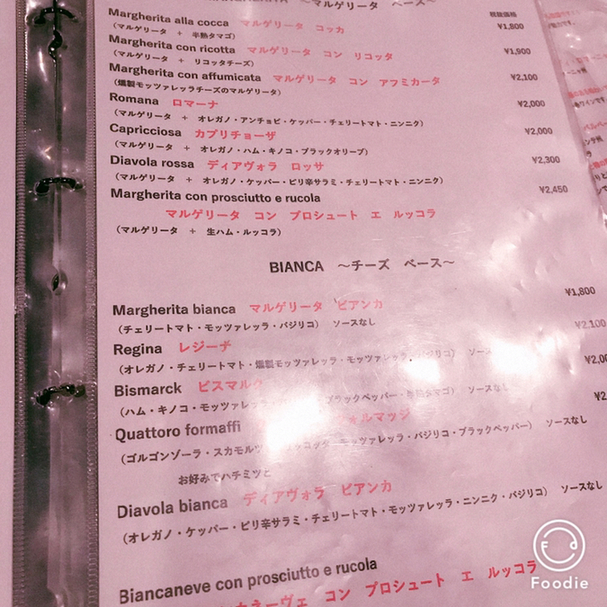 〜マルゲリータ ベース〜
税抜価格
Margherita alla cocca マルゲリータ コッカ ¥1,800
(マルゲリータ + 半熟タマゴ)
Margherita con ricotta マルゲリータ コン リコッタ ¥1,900
(マルゲリータ + リコッタチーズ)
Margherita con affumicata マルゲリータ コン アフミカータ ¥2,100
(燻製モッツァレッラチーズのマルゲリータ)
Romana ロマーナ ¥2,000
(マルゲリータ + オレガノ・アンチョビ・ケッパー・チェリートマト・ニンニク)
Capricciosa カプリチョーザ ¥2,000
(マルゲリータ + オレガノ・ハム・キノコ・ブラックオリーブ)
Diavola rossa ディアヴォラ ロッサ ¥2,300
(マルゲリータ + オレガノ・ケッパー・ピリ辛サラミ・チェリートマト・ニンニク)
Margherita con prosciutto e rucola ¥2,450
マルゲリータ コン プロシュート エ ルッコラ
(マルゲリータ + 生ハム・ルッコラ)
BIANCA 〜チーズ ベース〜
Margherita bianca マルゲリータ ビアンカ ¥1,800
(チェリートマト・モッツァレッラ・バジリコ) ソースなし
Regina レジーナ ¥2,100
(オレガノ・チェリートマト・燻製モッツァレッラ・モッツァレッラ・バジリコ)
Bismarck ビスマルク
(ハム・キノコ・モッツァレッ ブラックペッパー・半熟タマゴ) ソースなし
Quattoro formaffi ォルマッジ
(ゴルゴンゾーラ・スカモルツ モッツァレッラ・バジリコ・ブラックペッパー) ソースなし
お好みでハチミツと
Diavola bianca ディアヴォラ ビアンカ
(オレガノ・ケッパー・ピリ辛サラミ・チェリートマト・モッツァレッラ・ニンニク・バジリコ) ソースなし
Biancaneve con prosciutto e rucola
カネーヴェ コン プロシュート エ ルッコラ
Foodie